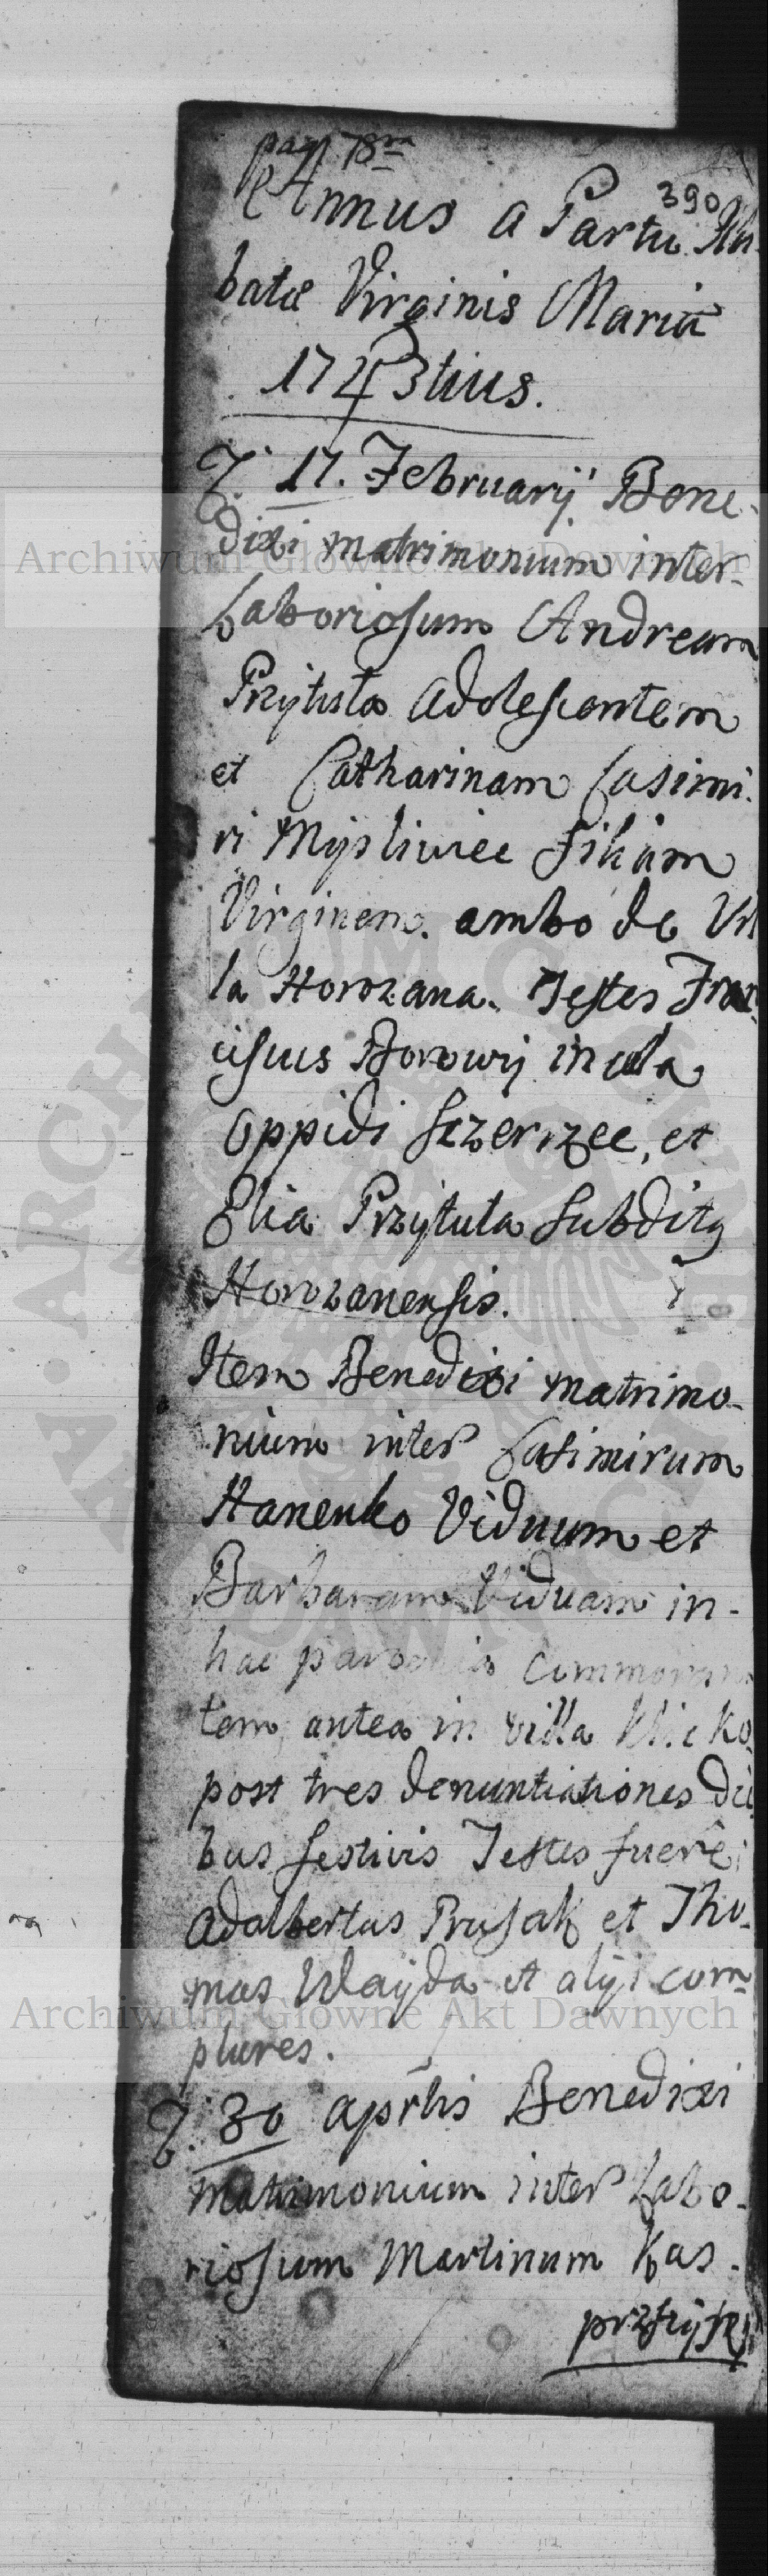 pag 78va
390
Annus a Partu Illi
batæ Virginis Mariæ
1743tius.
D. 17. Februarij Bene-
dixi matrimonium inter
Laboriosum Andream
Przytuła Adolescentem
et Catharinam Casimi-
ri Mysliwiec filiam
Virginem. ambo de Vil
la Horozana. Testes Fran
ciscus Borowy incola
Oppidi Sczerzec, et
Elia Przytuła Subditus
Horozanensis.
Item Benedixi matrimo-
nium inter Casimirum
Hanenko Viduum et
Barbaram Viduam in-
hac parochia commoran
tem antea in villa Klicko
post tres denuntiationes die
bus festivis Testes fuere
Adalbertus Prusak et Tho-
mas Wayda et alyi com
plures.
D. 30 aprilis Benedixi
Matrimonium inter Labo-
riosum Martinum Kas-
Archiwum Główne Akt Dawnych
Archiwum Główne Akt Dawnych